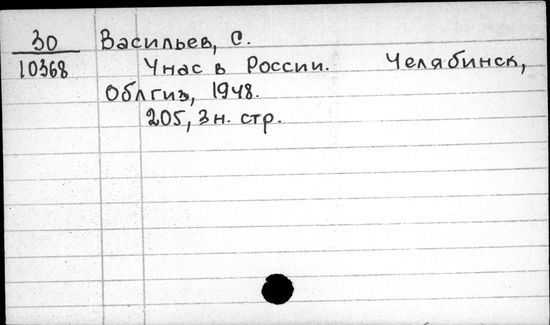 30 Васильев, С.
10368 Унас в России. Челябинск,
Облгиз, 1948.
205, 3 н. стр.